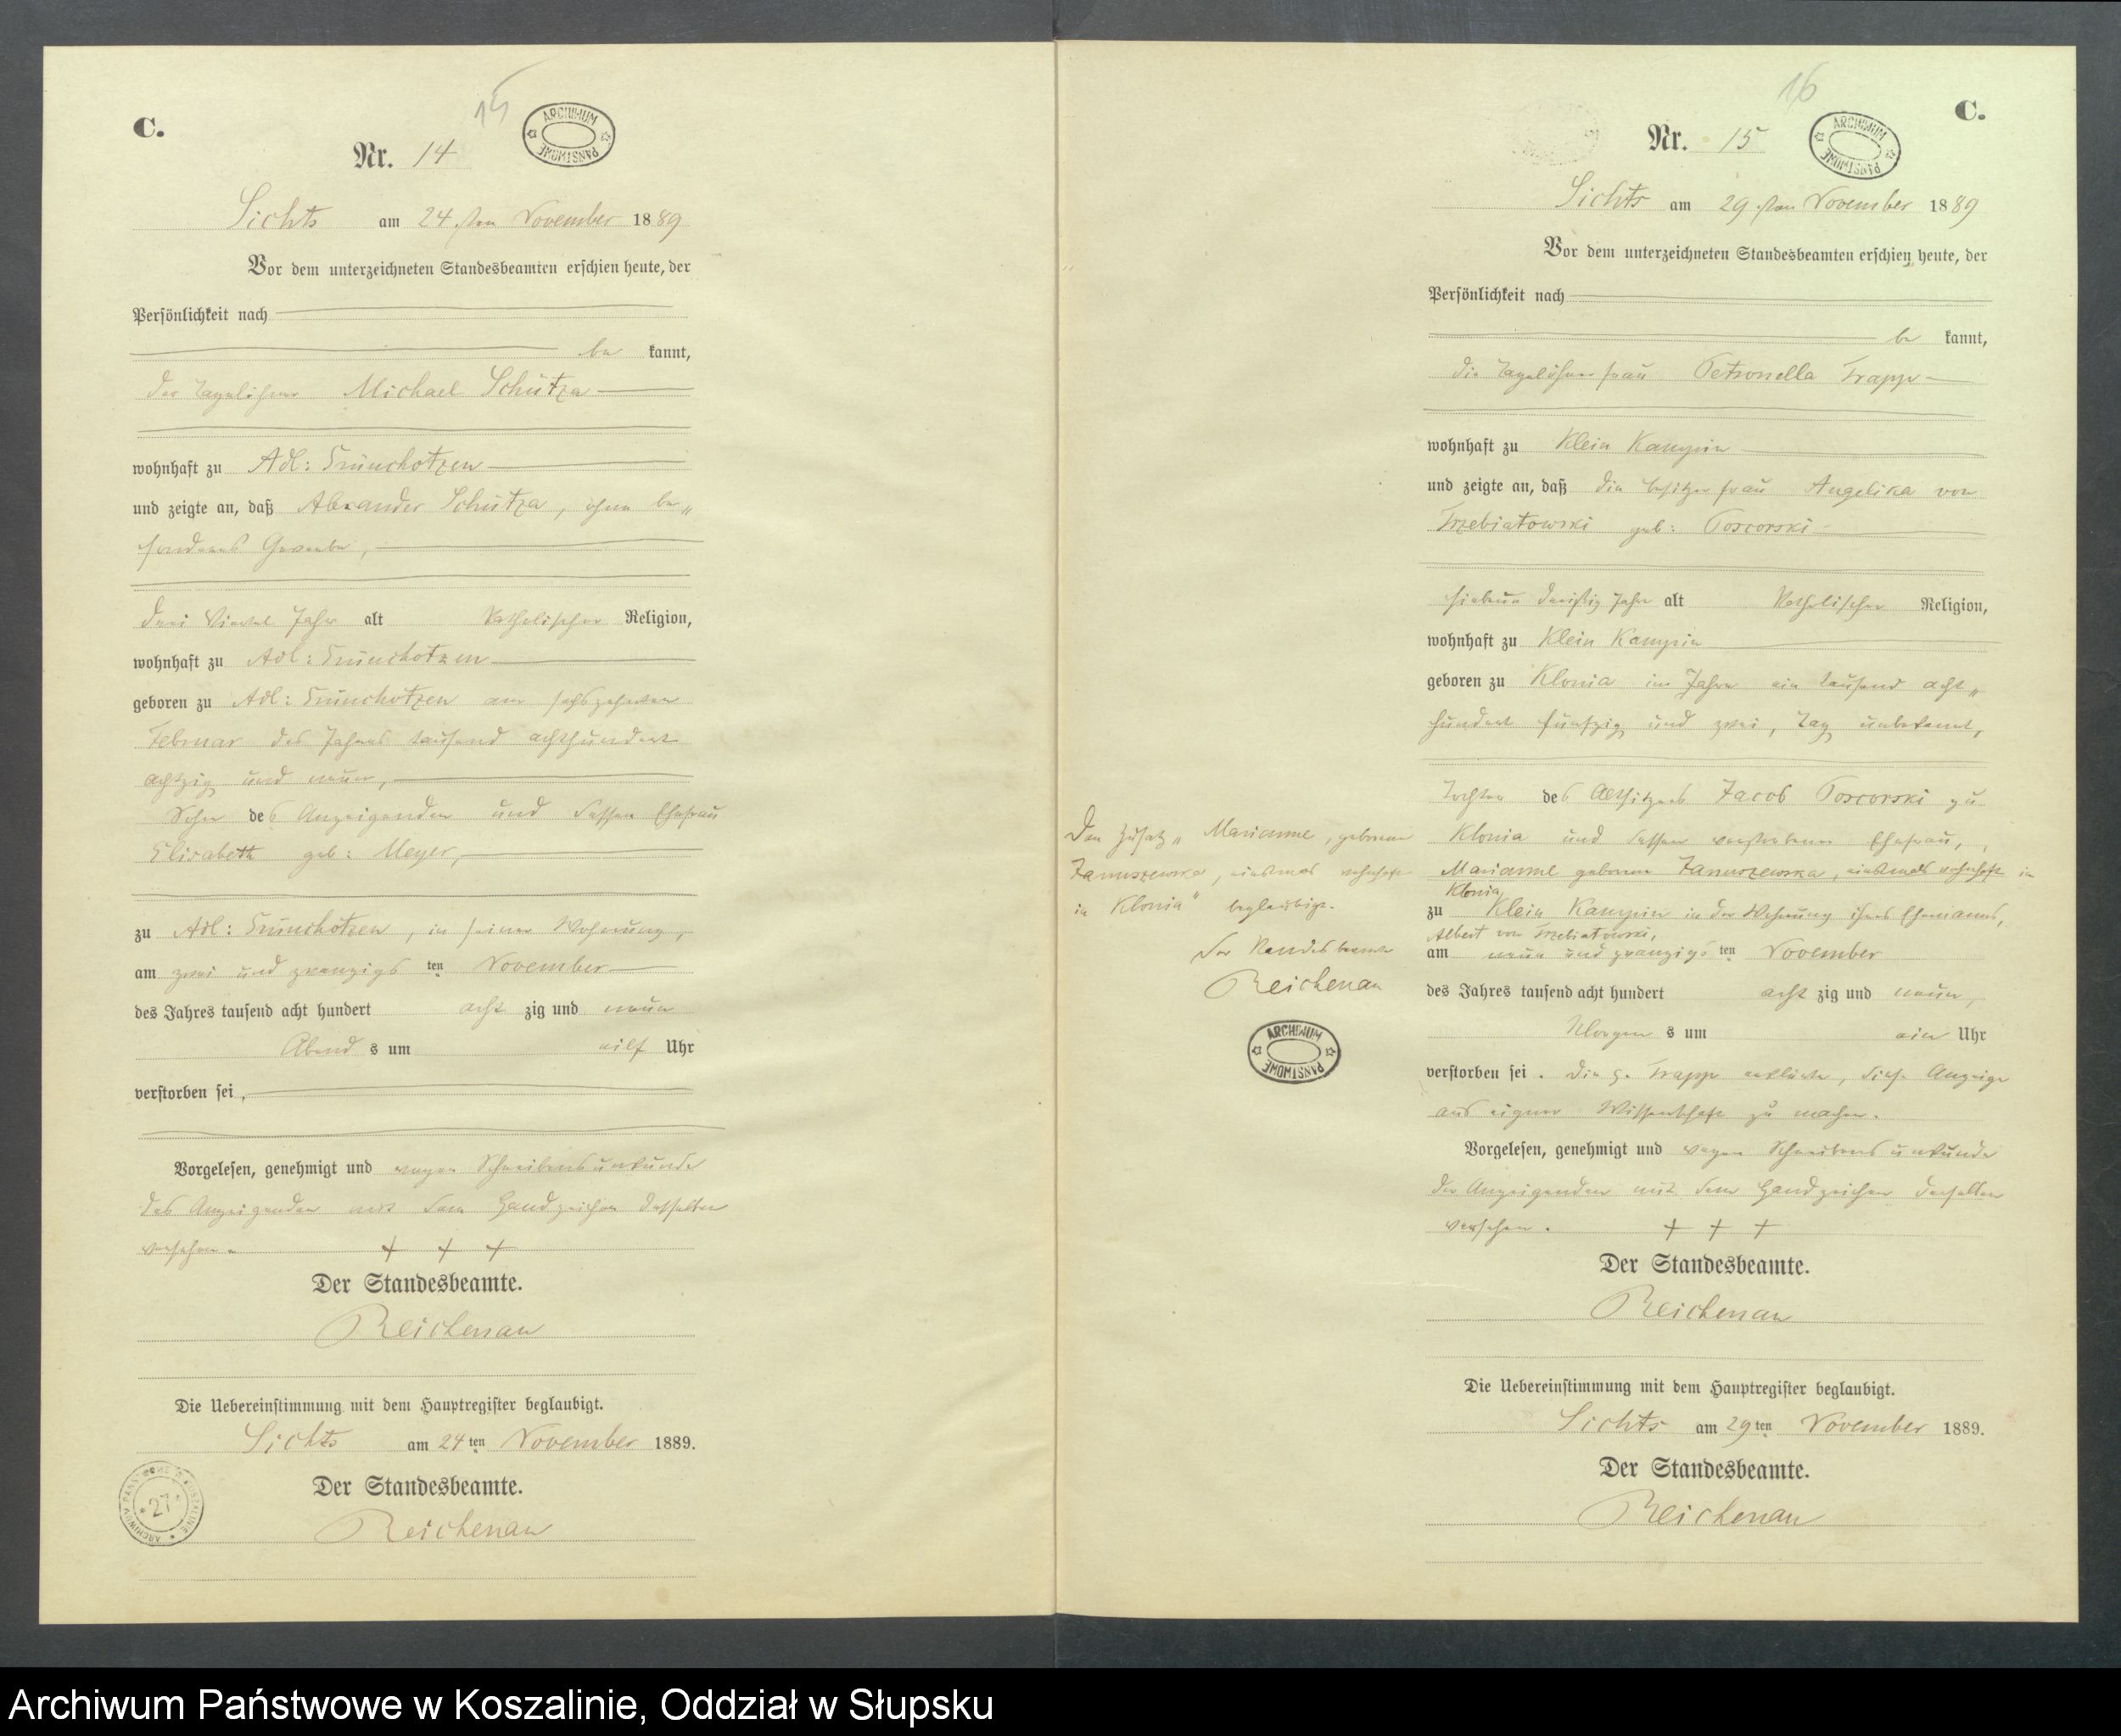 15
C.
ARCHIWUM PAŃSTWOWE
Nr. 14
Lichts am 24 sten November 1889
Vor dem unterzeichneten Standesbeamten erschien heute, der
Persönlichkeit nach
be kannt,
der Tagelöhner Michael Schütza
wohnhaft zu Adl: Briesen
und zeigte an, daß Alexander Schütza, ohne be„
sonderes Gewerbe,
drei Viertel Jahr alt katholischer Religion,
wohnhaft zu Adl:
geboren zu Adl: am sechszehnten
Februar des Jahres tausend achthundert
achtzig und neun,
Sohn des Anzeigenden und dessen Ehefrau
Elisabeth geb: Meyer,
zu Adl: , in seiner Wohnung,
am zwei und zwanzigs ten November
des Jahres tausend acht hundert acht zig und neun
Abend s um eilf Uhr
verstorben sei,
Vorgelesen, genehmigt und wegen Schreibensunkunde
des Anzeigenden mit dem Handzeichen desselben
versehen.
+ + +
Der Standesbeamte.
Reichenau
Die Uebereinstimmung mit dem Hauptregister beglaubigt.
Lichts am 24 ten November 1889.
Der Standesbeamte.
Reichenau
27
16
C.
Nr. 15
ARCHIWUM PAŃSTWOWE
Lichts am 29 sten November 1889
Vor dem unterzeichneten Standesbeamten erschien heute, der
Persönlichkeit nach
be kannt,
die Tagelöhnerfrau Petronella Trapp
wohnhaft zu Klein Kampin
und zeigte an, daß die Besitzerfrau Angelika von
Trzebiatowski geb: Poscorski
sieben dreißig Jahr alt katholischer Religion,
wohnhaft zu Klein Kampin
geboren zu Klonia im Jahre ein tausend acht„
hundert fünfzig und zwei, Tag unbekannt,
Tochter des Altsitzers Jacob Poscorski zu
Klonia und dessen verstorbenen Ehefrau,
Marianne geborene Januszewska, einstmals wohnhaft in
Klonia,
zu Klein Kampin in der Wohnung ihres Ehemannes,
Albert von Trzebiatowski,
am neun und zwanzigs ten November
des Jahres tausend acht hundert acht zig und neun,
Morgen s um ein Uhr
verstorben sei. Die p. Trapp erklärte, diese Anzeige
aus eigner Wissenschaft zu machen.
Vorgelesen, genehmigt und wegen Schreibensunkunde
der Anzeigenden mit dem Handzeichen derselben
versehen. + + +
Der Standesbeamte.
Reichenau
Die Uebereinstimmung mit dem Hauptregister beglaubigt.
Lichts am 29 ten November 1889.
Der Standesbeamte.
Reichenau
Den Zusatz „Marianne, geborene
Januszewska, einstmals wohnhaft
in Klonia" beglaubigt.
Der Standesbeamte
Reichenau
ARCHIWUM PAŃSTWOWE
Archiwum Państwowe w Koszalinie, Oddział w Słupsku